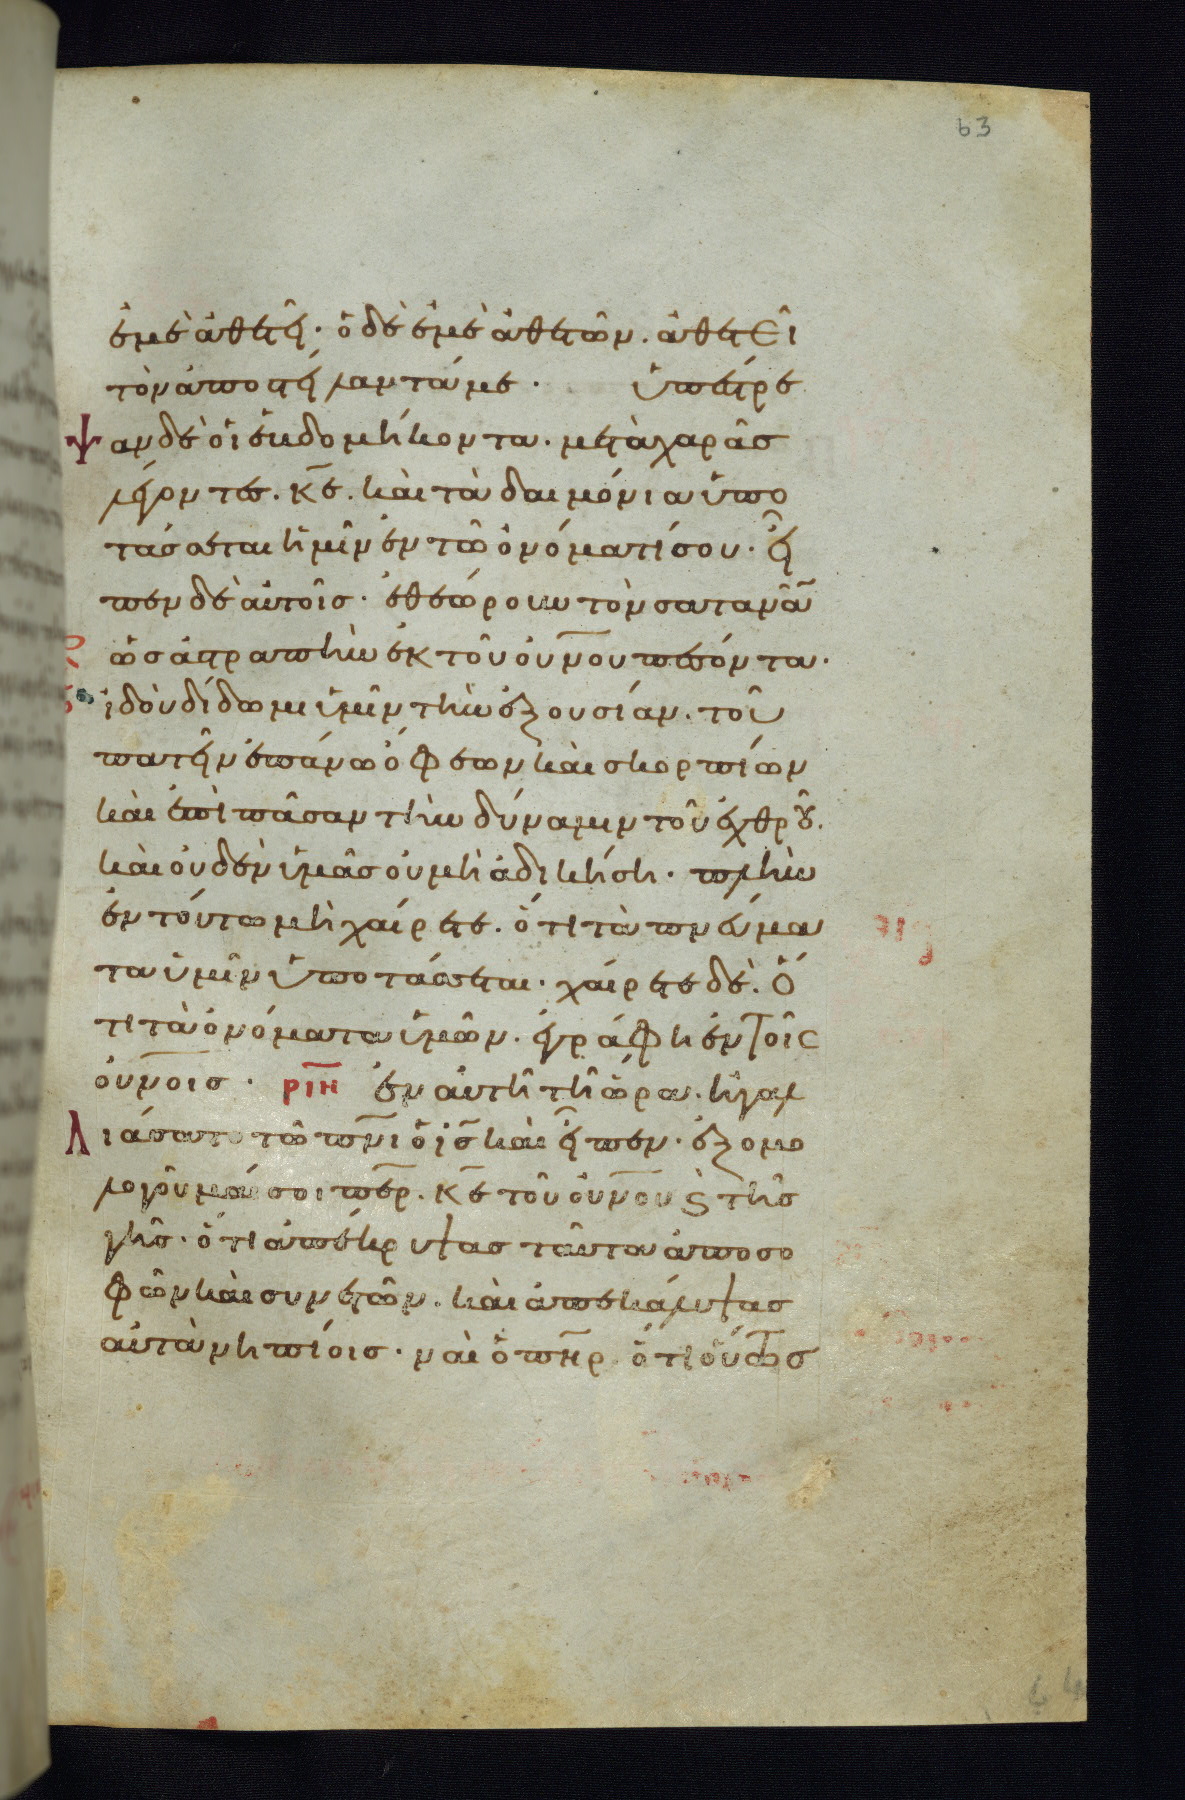 63
ἐμὲ ἀθετεῖ· ὁ δὲ ἐμὲ ἀθετῶν. ἀθετεῖ
τὸν ἀποστείλαντά με· ὑπέστρε
ψαν δὲ οἱ ἑβδομήκοντα. μετὰ χαρᾶσ
λέγοντεσ. κ̅ε̅. καὶ τὰ δαιμόνια ὑπο
τάσσεται ἡμῖν ἐν τῶ ὀνόματί σου· εἶ
πεν δὲ αὐτοῖσ· ἐθεώρουν τὸν σατανᾶν
ὡσ ἀστραπὴν ἐκ τοῦ οὐν̅ου πεσόντα·
ἰδοὺ δίδωμι ὑμῖν τὴν ἐξουσίαν. τοῦ
πατεῖν ἐπάνω ὄφεων καὶ σκορπίων
καὶ ἐπὶ πᾶσαν τὴν δύναμιν τοῦ ἐχθροῦ.
καὶ οὐδὲν ὑμᾶσ οὐ μὴ ἀδικήση· πλὴν
ἐν τούτω μὴ χαίρετε. ὅτι τὰ πνεύμα
τα ὑμῖν ὑποτάσσεται· χαίρετε δὲ. ὅ
τι τὰ ὀνόματα ὑμῶν. ἐγράφη ἐν τοῖς
οὐν̅οισ· ρι̅η̅ ἐν αὐτῆ τῆ ὥρα. ἠγαλ
λιάσατο τῶ πν̅ι ὁ ι̅σ̅ καὶ εἶπεν· ἐξομο
λογοῦμαί σοι πε̅ρ̅. κ̅ε̅ τοῦ οὐν̅ου ϗ τῆσ
γῆσ· ὅτι ἀπέκρυψασ ταῦτα ἀπο σο
φῶν καὶ συνετῶν. καὶ ἀπεκάλυψασ
αὐτὰ νηπίοισ· ναὶ ὁ πη̅ρ̅. ὅτι οὕτωσ